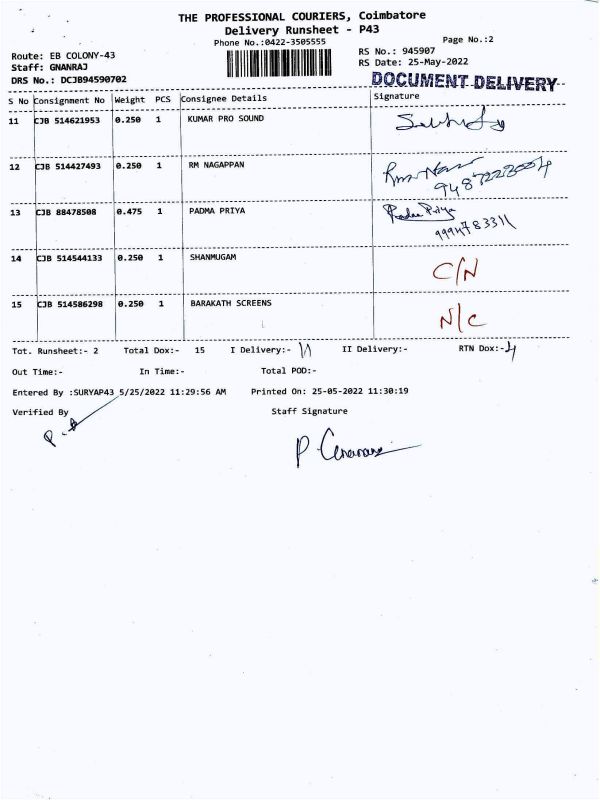 THE PROFESSIONAL COURIERS, Coimbatore
Delivery Runsheet - P43
Phone No.:0422-3505555
Page No.:2
Route: EB COLONY-43
RS No.: 945907
Staff: GNANRAJ
RS Date: 25-May-2022
DRS No.: DCJB94590702
DOCUMENT DELIVERY
S No Consignment No Weight PCS Consignee Details Signature
11 CJB 514621953 0.250 1 KUMAR PRO SOUND
12 CJB 514427493 0.250 1 RM NAGAPPAN
13 CJB 88478508 0.475 1 PADMA PRIYA Padma Priya
9994783311
14 CJB 514544133 0.250 1 SHANMUGAM C/N
15 CJB 514586298 0.250 1 BARAKATH SCREENS N/C
Tot. Runsheet:- 2 Total Dox:- 15 I Delivery:- 11 II Delivery:- RTN Dox:- 4
Out Time:- In Time:- Total POD:-
Entered By :SURYAP43 5/25/2022 11:29:56 AM Printed On: 25-05-2022 11:30:19
Verified By Staff Signature